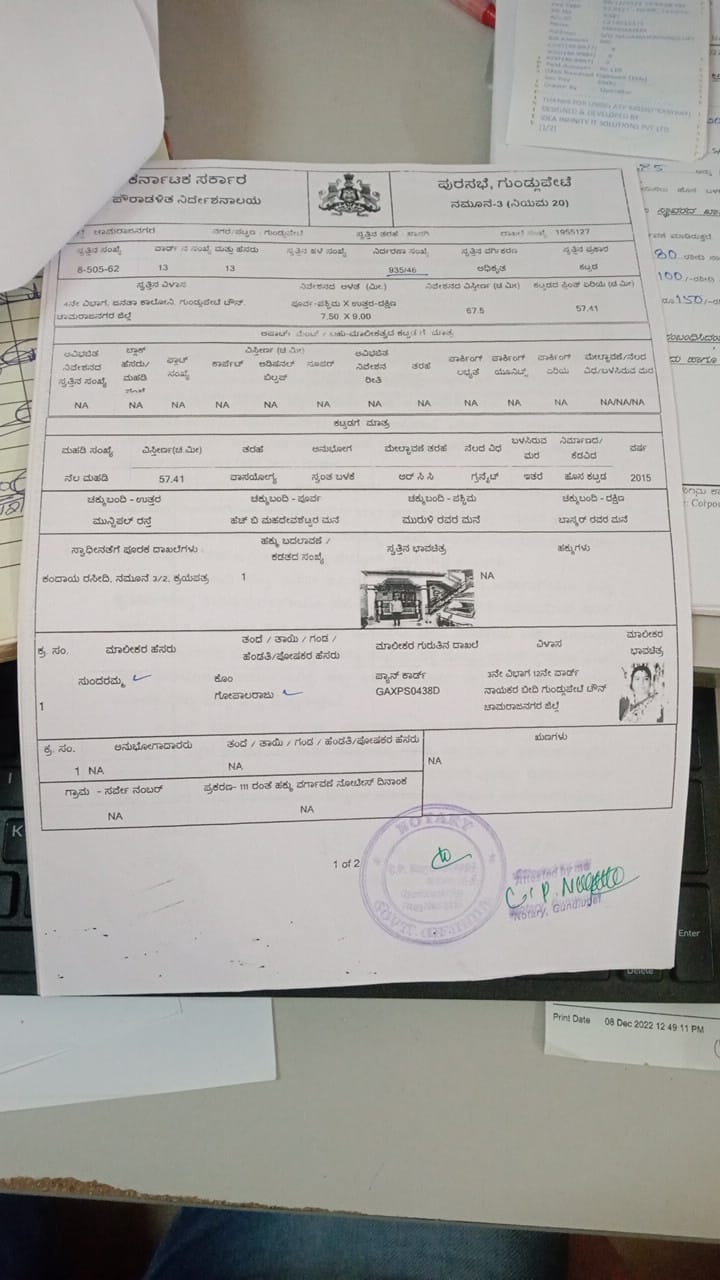 ಕರ್ನಾಟಕ ಸರ್ಕಾರ
ಪೌರಾಡಳಿತ ನಿರ್ದೇಶನಾಲಯ
ಪುರಸಭೆ, ಗುಂಡ್ಲುಪೇಟೆ
ನಮೂನೆ-3 (ನಿಯಮ 20)
ಚಾಮರಾಜನಗರ ನಗರ/ಪಟ್ಟಣ : ಗುಂಡ್ಲುಪೇಟೆ ಸ್ವತ್ತಿನ ತರಹೆ : ಖಾಸಗಿ ದಾಖಲೆ ಸಂಖ್ಯೆ 1955127
ಸ್ವತ್ತಿನ ಸಂಖ್ಯೆ ವಾರ್ಡ್ ನ ಸಂಖ್ಯೆ ಮತ್ತು ಹೆಸರು ಸ್ವತ್ತಿನ ಹಳೆ ಸಂಖ್ಯೆ ನಿರ್ಧರಣಾ ಸಂಖ್ಯೆ ಸ್ವತ್ತಿನ ವರ್ಗೀಕರಣ ಸ್ವತ್ತಿನ ಪ್ರಕಾರ
8-505-62 13 13 935/46 ಅಧಿಕೃತ ಕಟ್ಟಡ
ಸ್ವತ್ತಿನ ವಿಳಾಸ ನಿವೇಶನದ ಅಳತೆ (ಮೀ.) ನಿವೇಶನದ ವಿಸ್ತೀರ್ಣ (ಚ ಮೀ) ಕಟ್ಟಡದ ಪ್ಲಿಂತ್ ಏರಿಯ (ಚ ಮೀ)
4ನೇ ವಿಭಾಗ, ಜನತಾ ಕಾಲೋನಿ, ಗುಂಡ್ಲುಪೇಟೆ ಟೌನ್. ಪೂರ್ವ-ಪಶ್ಚಿಮ X ಉತ್ತರ-ದಕ್ಷಿಣ 67.5 57.41
ಚಾಮರಾಜನಗರ ಜಿಲ್ಲೆ 7.50 X 9.00
ಅಪಾರ್ಟ್ ಮೆಂಟ್ / ಬಹು-ಮಾಲೀಕತ್ವದ ಕಟ್ಟಡಗೆ ಮಾತ್ರ
ವಿಸ್ತೀರ್ಣ (ಚ ಮೀ)
ಅವಿಭಜಿತ ನಿವೇಶನದ ಸ್ವತ್ತಿನ ಸಂಖ್ಯೆ ಬ್ಲಾಕ್ ಹೆಸರು/ ಮಹಡಿ ಪ್ಲಾಟ್ ಸಂಖ್ಯೆ ಕಾರ್ಪೆಟ್ ಅಡಿಷನಲ್ ಬಿಲ್ಟಪ್ ಸೂಪರ್ ಅವಿಭಜಿತ ನಿವೇಶನ ರೀತಿ ತರಹೆ ಪಾರ್ಕಿಂಗ್ ಲಭ್ಯತೆ ಪಾರ್ಕಿಂಗ್ ಯೂನಿಟ್ಸ್ ಪಾರ್ಕಿಂಗ್ ಏರಿಯ ಮೇಲ್ಛಾವಣಿ/ನೆಲದ ವಿಧ/ಬಳಸಿರುವ ಮರ
NA NA NA NA NA NA NA NA NA NA NA NA/NA/NA
ಕಟ್ಟಡಗೆ ಮಾತ್ರ
ಮಹಡಿ ಸಂಖ್ಯೆ ವಿಸ್ತೀರ್ಣ(ಚ.ಮೀ) ತರಹೆ ಅನುಭೋಗ ಮೇಲ್ಛಾವಣಿ ತರಹೆ ನೆಲದ ವಿಧ ಬಳಸಿರುವ ಮರ ನಿರ್ಮಾಣದ/ಕೆಡವಿದ ವರ್ಷ
ನೆಲ ಮಹಡಿ 57.41 ವಾಸಯೋಗ್ಯ ಸ್ವಂತ ಬಳಕೆ ಆರ್ ಸಿ ಸಿ ಗ್ರನೈಟ್ ಇತರೆ ಹೊಸ ಕಟ್ಟಡ 2015
ಚಕ್ಕುಬಂದಿ - ಉತ್ತರ ಚಕ್ಕುಬಂದಿ - ಪೂರ್ವ ಚಕ್ಕುಬಂದಿ - ಪಶ್ಚಿಮ ಚಕ್ಕುಬಂದಿ - ದಕ್ಷಿಣ
ಮುನ್ಸಿಪಲ್ ರಸ್ತೆ ಹೆಚ್ ಬಿ ಮಹದೇವಶೆಟ್ಟರ ಮನೆ ಮುರುಳಿ ರವರ ಮನೆ ಬಾಸ್ಕರ್ ರವರ ಮನೆ
ಸ್ವಾಧೀನತೆಗೆ ಪೂರಕ ದಾಖಲೆಗಳು ಹಕ್ಕು ಬದಲಾವಣೆ / ಕಡತದ ಸಂಖ್ಯೆ ಸ್ವತ್ತಿನ ಭಾವಚಿತ್ರ ಹಕ್ಕುಗಳು
ಕಂದಾಯ ರಸೀದಿ, ನಮೂನೆ 3/2, ಕ್ರಯಪತ್ರ 1 NA
ಕ್ರ. ಸಂ. ಮಾಲೀಕರ ಹೆಸರು ತಂದೆ / ತಾಯಿ / ಗಂಡ / ಹೆಂಡತಿ/ಪೋಷಕರ ಹೆಸರು ಮಾಲೀಕರ ಗುರುತಿನ ದಾಖಲೆ ವಿಳಾಸ ಮಾಲೀಕರ ಭಾವಚಿತ್ರ
1 ಸುಂದರಮ್ಮ ಕೊಂ ಗೋಪಾಲರಾಜು ಪ್ಯಾನ್ ಕಾರ್ಡ್ GAXPS0438D 3ನೇ ವಿಭಾಗ 12ನೇ ವಾರ್ಡ್ ನಾಯಕರ ಬೀದಿ ಗುಂಡ್ಲುಪೇಟೆ ಟೌನ್ ಚಾಮರಾಜನಗರ ಜಿಲ್ಲೆ
ಕ್ರ. ಸಂ. ಅನುಭೋಗಾದಾರರು ತಂದೆ / ತಾಯಿ / ಗಂಡ / ಹೆಂಡತಿ/ಪೋಷಕರ ಹೆಸರು ಋಣಗಳು
1 NA NA NA
ಗ್ರಾಮ - ಸರ್ವೇ ನಂಬರ್ ಪ್ರಕರಣ- 111 ರಂತೆ ಹಕ್ಕು ವರ್ಗಾವಣೆ ನೋಟೀಸ್ ದಿನಾಂಕ
NA NA
1 of 2
NOTARY
Attested by me
Notary, Gundlupet
Enter
Delete
K
Print Date 08 Dec 2022 12:49:11 PM